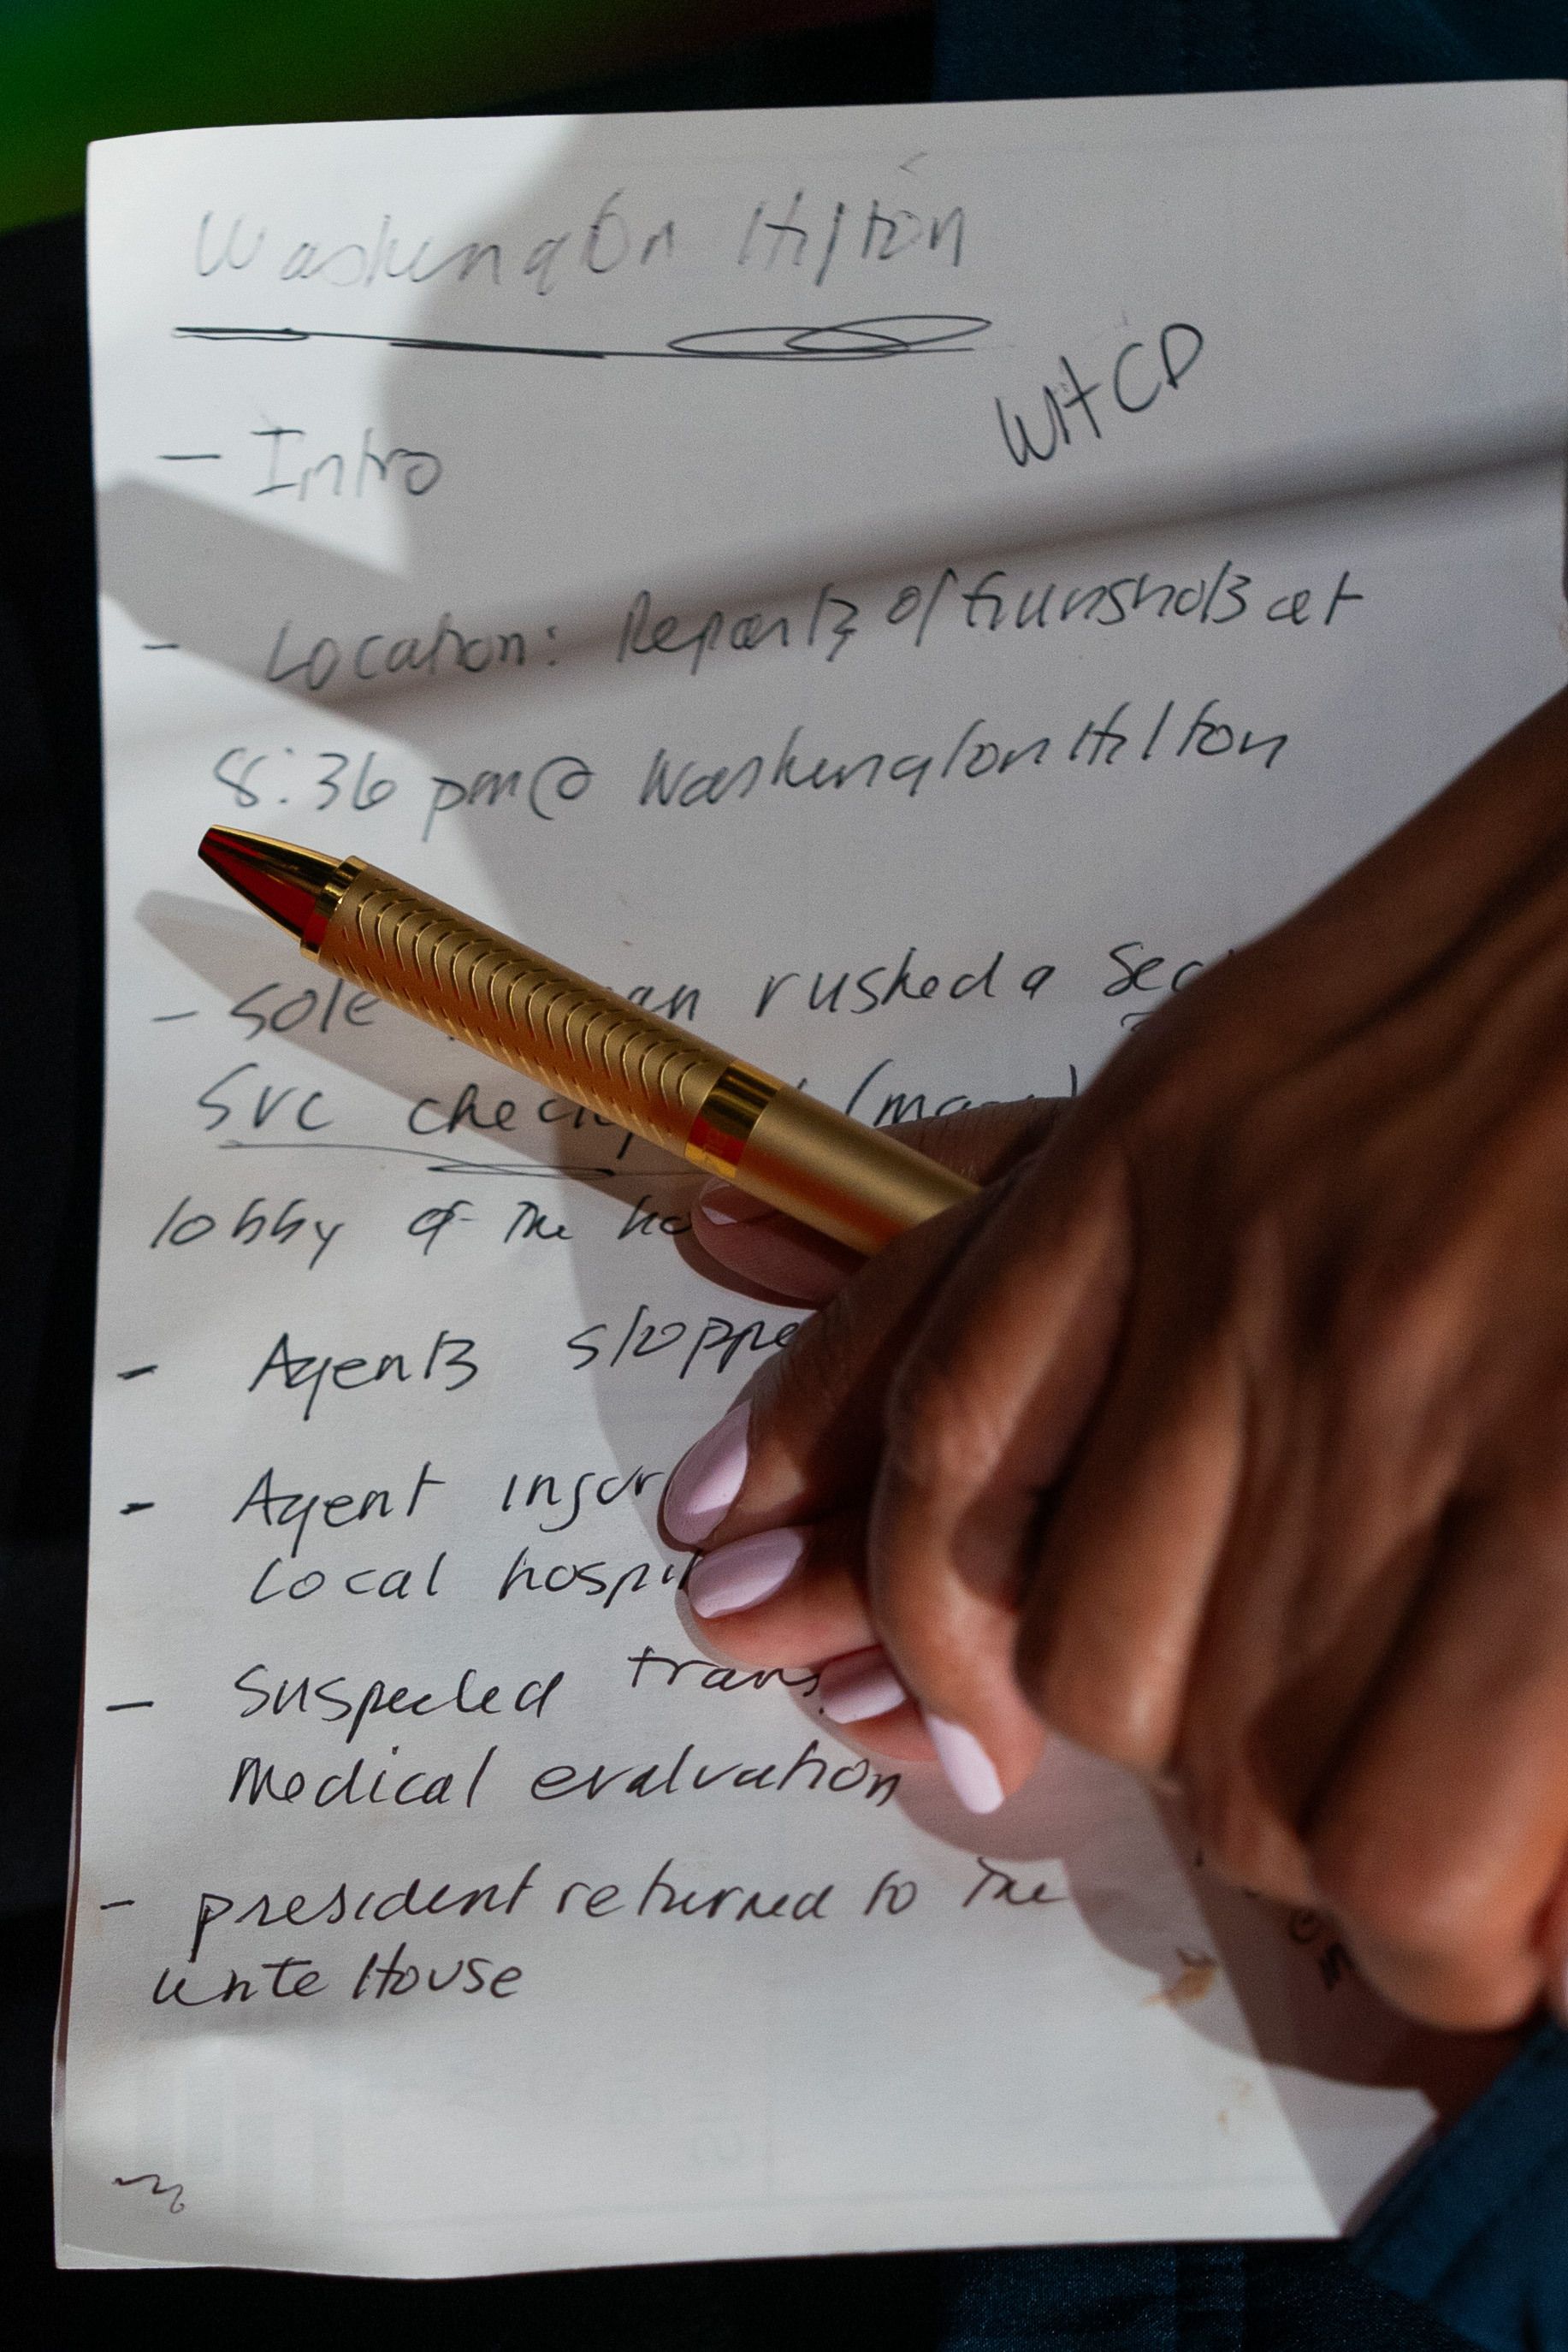 Washington Hilton
WHCD
- Intro
- Location: Reports of Gunshots at
8:36 pm @ Washington Hilton
- Sole rushed a Sec
Svc
lobby of the
- Agents stoppe
- Agent
Local hospit
- Suspected trans
Medical evaluation
- president returned to The
White House